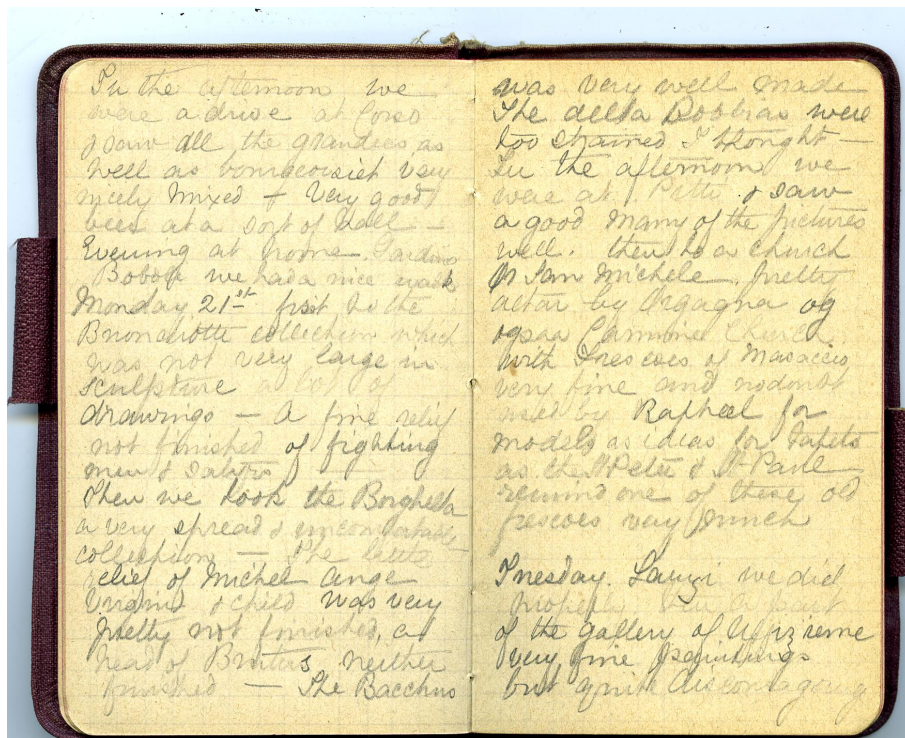 In the afternoon we
were a drive at Corso
& saw all the grandies as
well as very
nicely mixed + very good
been at a sort of ball –
Evening at home
Bobboli we had a nice walk
Monday 21st first to the
collection which
was not very large in
sculpture a lot of
drawings – A fine relief
not finished of fighting
men & satyrs
Then we took the
a very spread & uncomfortable
collection – The little
relief of Michel Ange
Virgin & child was very
pretty not finished, a
head of Brutus neither
finished – The Bacchus
was very well made
The della Bobbias were
too strained I thought –
In the afternoon we
were at Pitti & saw
a good many of the pictures
well. then to a church
San Michele pretty
altar by Orgagna og
ogsaa Carmine Church
with Frescoes of Masaccio
very fine and no doubt
used by Rafheel for
models as ideas for tapets
as the St Peter & St Paul
remind one of these old
frescoes very much
Tuesday. we did
properly part
of the gallery of
very fine paintings
but quite discouraging